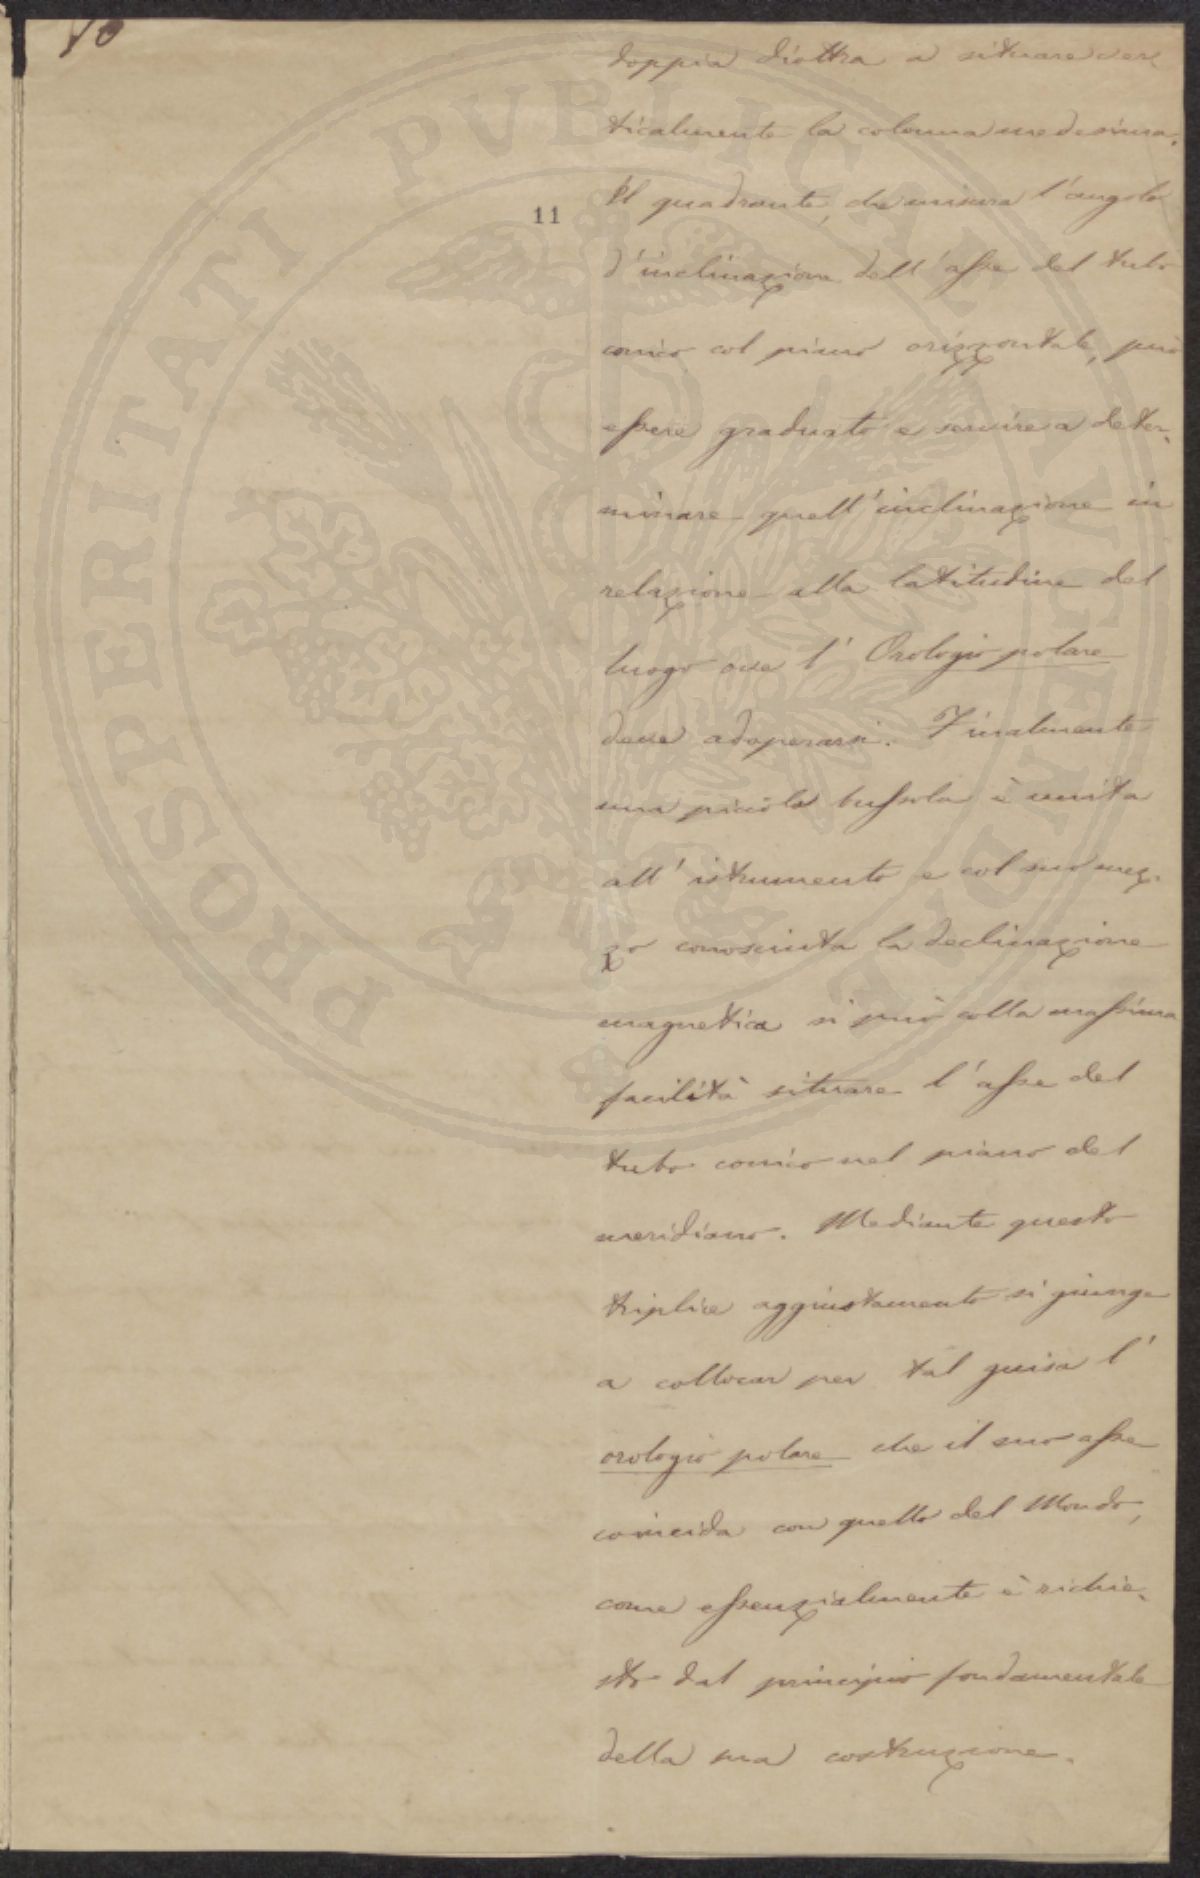 10
doppia diottra a situare ver
ticalmente la colonna medesima.
11
Il quadrante, che misura l'angolo
d'inclinazione dell'asse del tubo
conico col piano orizzontale, può
essere graduato e servire a deter-
minare quell'inclinazione in
relazione alla latitudine del
luogo ove l' Orologio polare
deve adoperarsi. Finalmente
una piccola bussola è unita
all'istrumento e col suo mez-
zo conosciuta la declinazione
magnetica si può colla massima
facilità situare l'asse del
tubo conico nel piano del
meridiano. Mediante questo
triplice aggiustamento si giunge
a collocar per tal guisa l'
orologio polare che il suo asse
coincida con quello del Mondo,
come essenzialmente è richie-
sto dal principio fondamentale
della sua costruzione.
PROSPERITATI PUBLICAE AVGENDAE